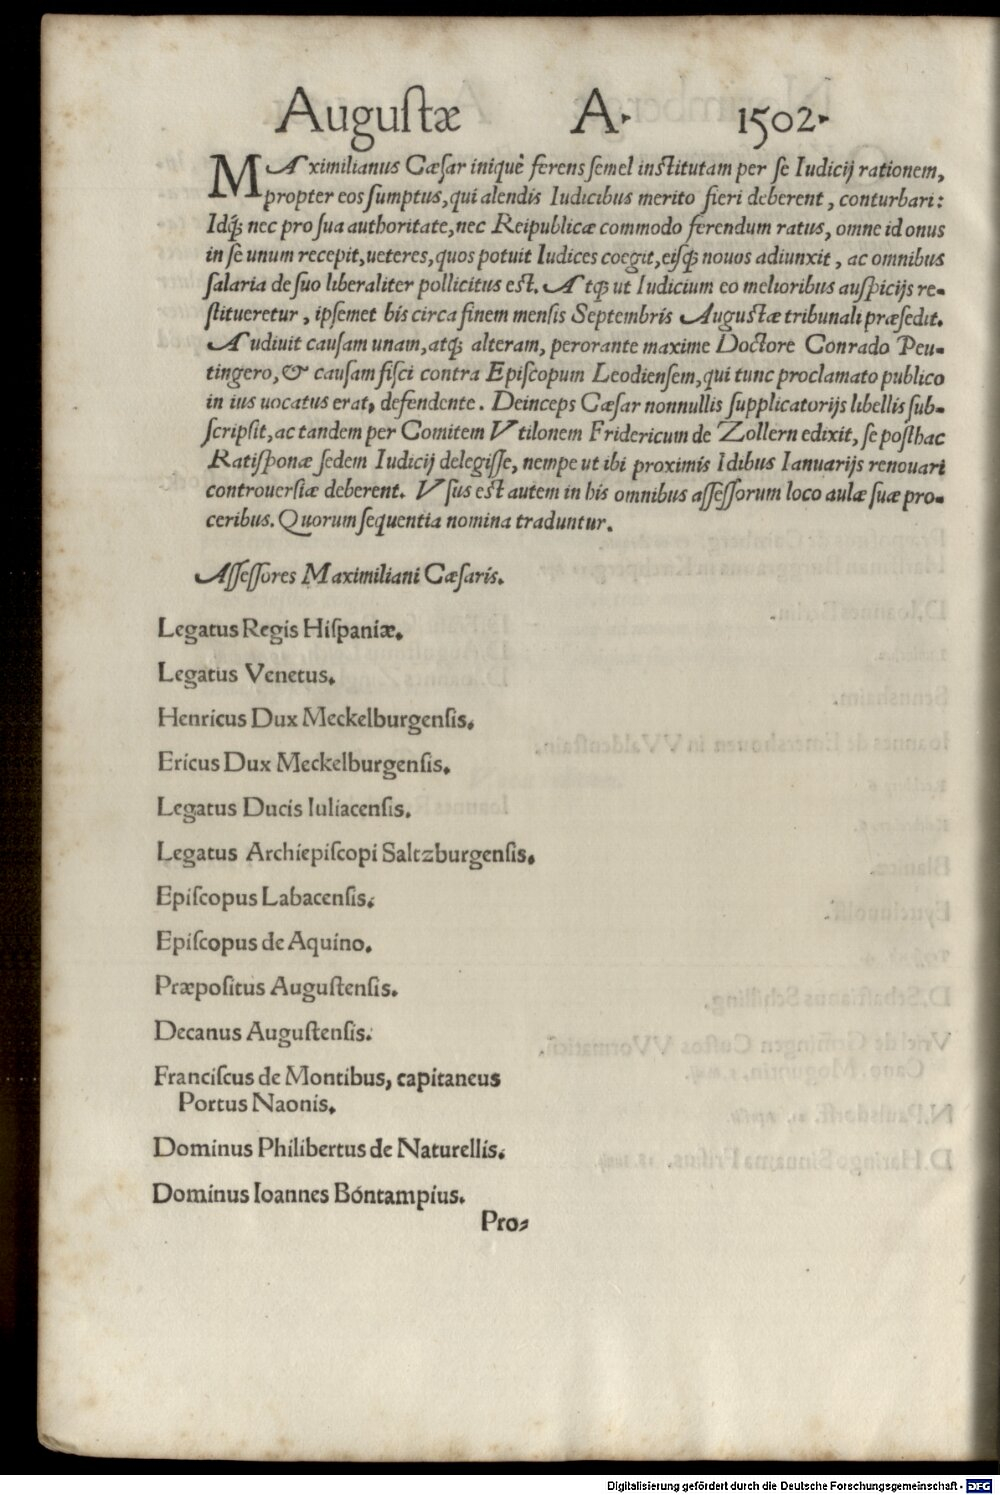 Auguſtæ A. 1502.
MAximilianus Cæſar iniquè ferens ſemel inſtitutam per ſe Iudicij rationem,
propter eos ſumptus, qui alendis Iudicibus merito fieri deberent, conturbari:
Idq́; nec pro ſua authoritate, nec Reipublicæ commodo ferendum ratus, omne id onus
in ſe unum recepit, ueteres, quos potuit Iudices coegit, eiſq́; nouos adiunxit, ac omnibus
ſalaria de ſuo liberaliter pollicitus eſt. Atq́; ut Iudicium eo melioribus auſpicijs re-
ſtitueretur, ipſemet bis circa finem menſis Septembris Auguſtæ tribunali præſedit.
Audiuit cauſam unam, atq́; alteram, perorante maxime Doctore Conrado Peu-
tingero, & cauſam fiſci contra Epiſcopum Leodienſem, qui tunc proclamato publico
in ius uocatus erat, defendente. Deinceps Cæſar nonnullis ſupplicatorijs libellis ſub-
ſcripſit, ac tandem per Comitem Vtilonem Fridericum de Zollern edixit, ſe poſthac
Ratiſponæ ſedem Iudicij delegiſſe, nempe ut ibi proximis Idibus Ianuarijs renouari
controuerſiæ deberent. Vſus eſt autem in his omnibus aſſeſſorum loco aulæ ſuæ pro-
ceribus. Quorum ſequentia nomina traduntur.
Aſſeſſores Maximiliani Cæſaris.
Legatus Regis Hiſpaniæ.
Legatus Venetus.
Henricus Dux Meckelburgenſis.
Ericus Dux Meckelburgenſis.
Legatus Ducis Iuliacenſis.
Legatus Archiepiſcopi Saltzburgenſis.
Epiſcopus Labacenſis.
Epiſcopus de Aquino.
Præpoſitus Auguſtenſis.
Decanus Auguſtenſis.
Franciſcus de Montibus, capitaneus
Portus Naonis.
Dominus Philibertus de Naturellis.
Dominus Ioannes Bóntampius.
Pro-
Digitalisierung gefördert durch die Deutsche Forschungsgemeinschaft - DFG